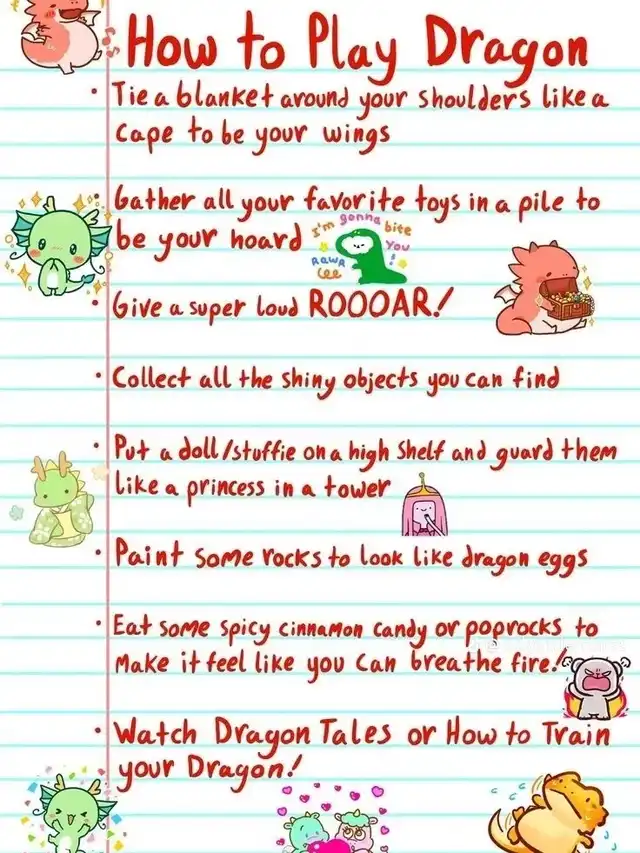 How to Play Dragon
• Tie a blanket around your shoulders like a
cape to be your wings
• Gather all your favorite toys in a pile to
be your hoard
I'm gonna bite
you!
RAWR
• Give a super loud ROOOAR!
• Collect all the shiny objects you can find
• Put a doll/stuffie on a high shelf and guard them
like a princess in a tower
• Paint some rocks to look like dragon eggs
• Eat some spicy cinnamon candy or poprocks to
make it feel like you can breathe fire!
• Watch Dragon Tales or How to Train
your Dragon!